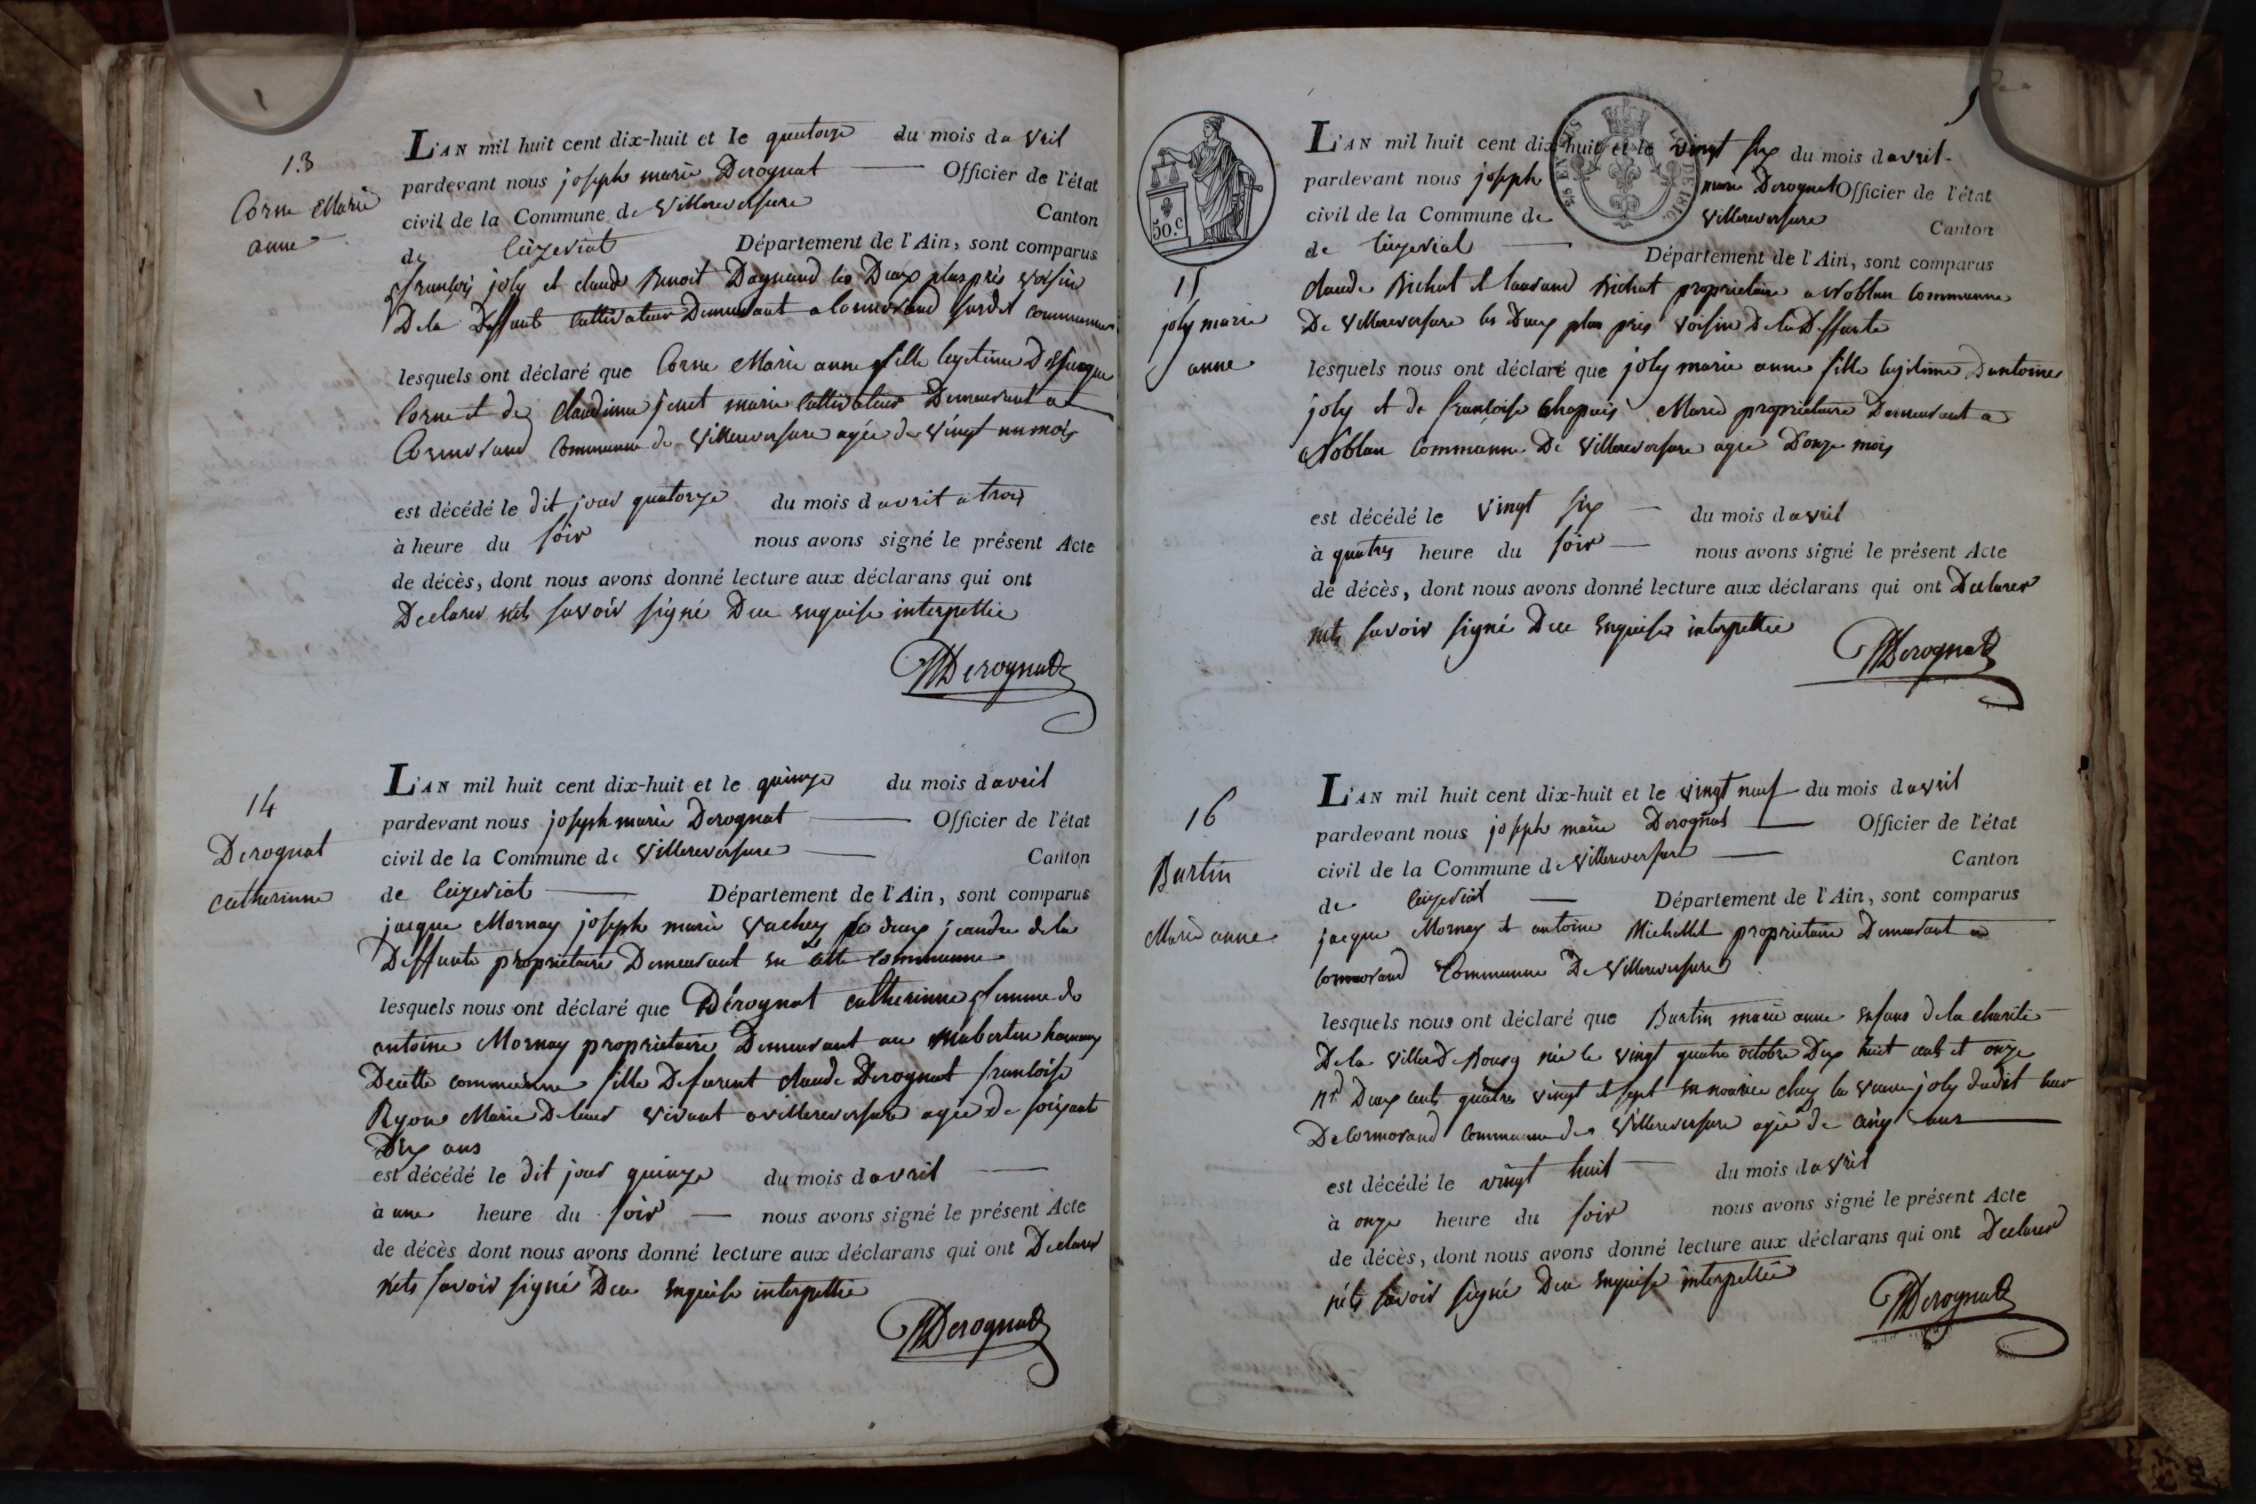 13
Corne Marie
anne
L'AN mil huit cent dix-huit et le quatorze du mois davril
pardevant nous joseph marie Derognat Officier de l'état
civil de la Commune de Villereversure Canton
de Ceizeriat Département de l'Ain, sont comparus
françois joly et claude Benoit Dagnaud les Deux plus près voisin
De la Deffunte Cultivateur Demeurant a Cormorand susdit commune
lesquels ont déclaré que Corne Marie anne fille legetime De jacque
Corne et de Claudine jenet marie Cultivateur Demeurant a
Cormorand Commune de Villereversure agée de vingt un mois
est décédé le dit jour quatorze du mois davril a trois
à heure du soir nous avons signé le présent Acte
de décès, dont nous avons donné lecture aux déclarans qui ont
Declarer nets savoir signé Dee enquise interpellie
Derognat
14
Derognat
catherinne
L'AN mil huit cent dix-huit et le quinze du mois davril
pardevant nous joseph marie Derognat Officier de l'état
civil de la Commune de Villereversure Canton
de Ceizeriat Département de l'Ain, sont comparus
jacque Mornay joseph marie Vachey les deux jeandre dela
Deffunte proprietaire Demeurant en cette commune
lesquels nous ont déclaré que Dérognat catherinne femme de
antoine Mornay proprietaire Demeurant au hameaux
De cette commune fille De furent claude Derognat francoise
Ryon Marie De leur vivant a villereversure agée de soixant
Dix ans
est décédé le dit jour quinze du mois davril
à une heure du soir nous avons signé le présent Acte
de décès dont nous avons donné lecture aux déclarans qui ont Declarer
nets savoir signé Dee enquise interpellie
Derognat
5
50.c
DE 1816.
15
joly marie
anne
L'AN mil huit cent dix-huit et le vingt six du mois davril
pardevant nous joseph marie Derognat Officier de l'état
civil de la Commune de Villereversure Canton
de Ceizerial Département de l'Ain, sont comparus
claude Bichat et laurand Bichat proprietaire a Noblan Commune
De Villereversure les Deux plus près voisin De la Deffunte
lesquels nous ont déclaré que joly marie anne fille legitime Dantoine
joly et de francoise Chapuis Marié proprietaire Demeurant a
Noblan Commune De Villereversure agée Donze mois
est décédé le vingt six du mois davril
à quatres heure du soir nous avons signé le présent Acte
de décès, dont nous avons donné lecture aux déclarans qui ont Declarer
nets savoir signé Dee enquise interpellie
Derognat
16
Burtin
Marie anne
L'AN mil huit cent dix-huit et le vingt neuf du mois davril
pardevant nous joseph marie Derognat Officier de l'état
civil de la Commune de Villereversure Canton
de Ceizeriat Département de l'Ain, sont comparus
jacque Mornay et antoine Michellet proprietaire Demeurant a
Cormorand Commune De Villereversure
lesquels nous ont déclaré que Burtin marie anne enfans de la charité
De la ville De Bourg née le vingt quatre octobre Dix huit cent et onze
nr. Deux cents quatres vingt et sept en nourice chez la veuve joly dudit lieu
De Cormorand Commune de Villereversure agée de cinq ans
est décédé le vingt huit du mois davril
à onze heure du soir nous avons signé le présent Acte
de décès, dont nous avons donné lecture aux déclarans qui ont Declarer
néts savoir signé Dee enquise interpellie
Derognat